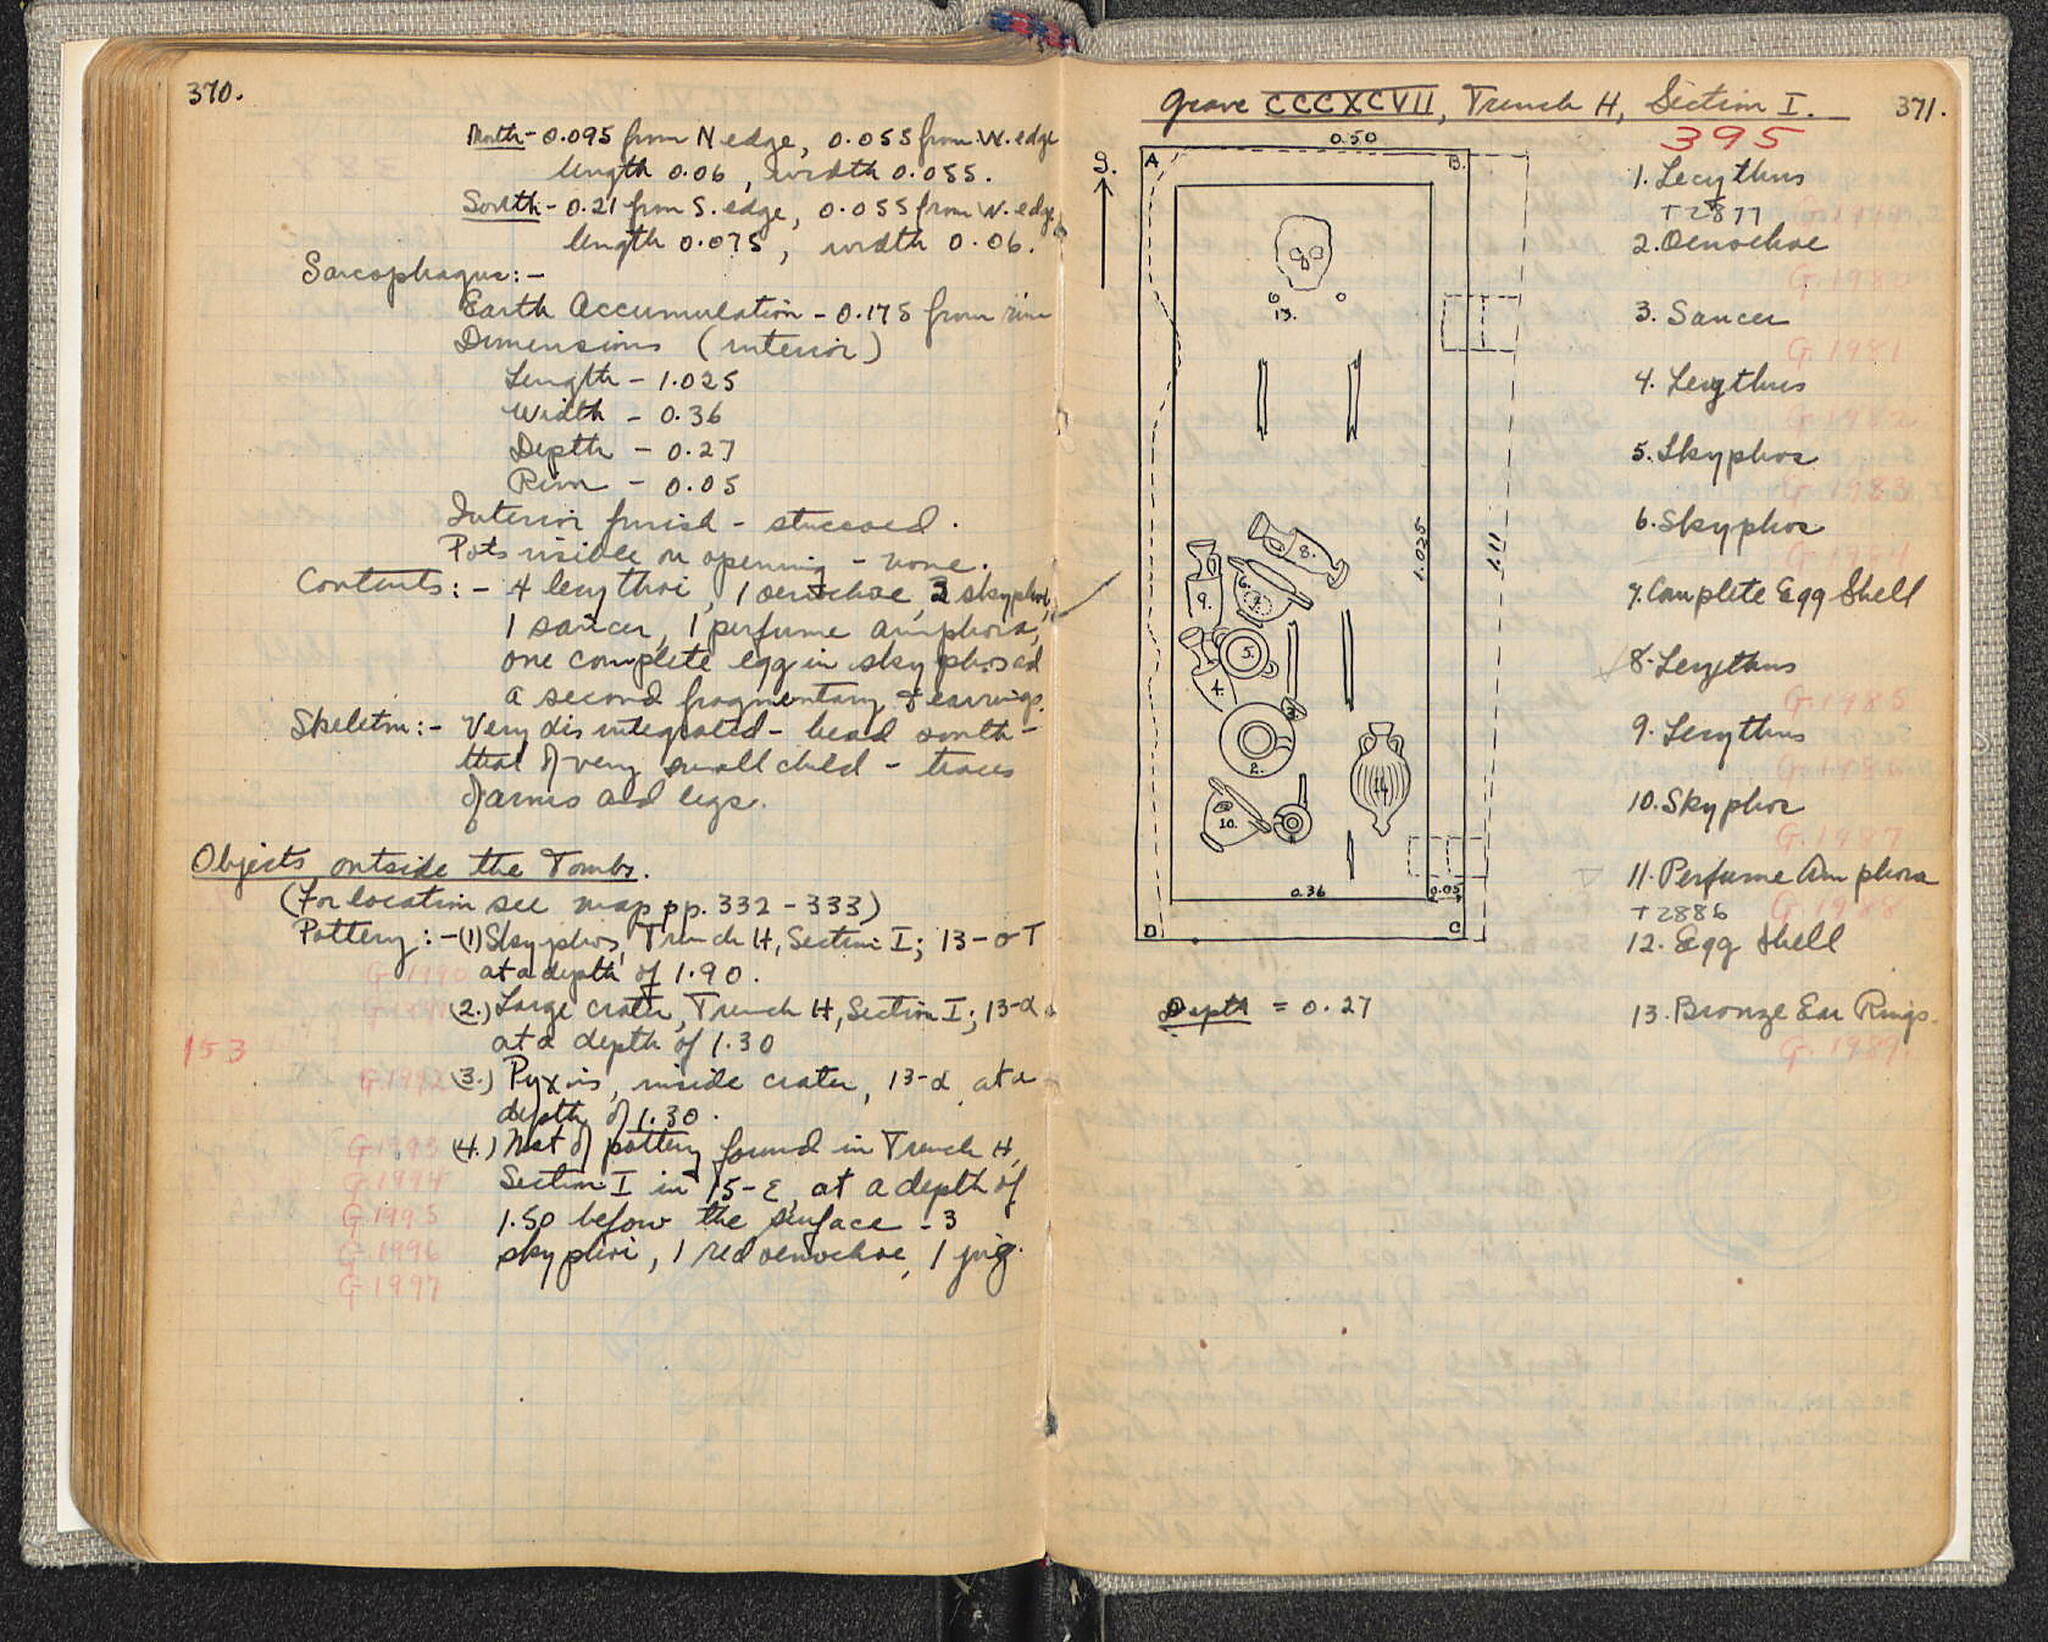 370.
North - 0.095 from N edge, 0.055 from W. edge
length 0.06, width 0.055.
South - 0.21 from S. edge, 0.055 from W. edge
length 0.075, width 0.06.
Sarcophagus: -
Earth Accumulation - 0.175 from rim
Dimensions (interior)
Length - 1.025
Width - 0.36
Depth - 0.27
Rim - 0.05
Interior finish - stuccoed.
Pots visible on opening - none.
Contents: - 4 lecythoi, 1 oenochoe, 3 skyphoi,
1 saucer, 1 perfume amphora,
one complete egg in skyphos and
a second fragmentary & earrings.
Skeleton: - Very disintegrated - head south -
that of very small child - traces
of arms and legs.
Objects outside the Tombs.
(For location see map pp. 332 - 333)
Pottery: - (1) Skyphos, Trench H, Section I; 13-σ T
G.1990 at a depth of 1.90.
(2.) Large crater, Trench H, Section I; 13-α
at a depth of 1.30
153
G.1992 (3.) Pyxis, inside crater, 13-α, at a
depth of 1.30.
G.1993 (4.) Nest of pottery found in Trench H,
G.1994 Section I in 15-ε, at a depth of
G.1995 1.50 below the surface - 3
G.1996 skyphoi, 1 red oenochoe, 1 jug.
G.1997
Grave CCCXCVII, Trench H, Section I. 371.
395
S.
0.50
A B.
13.
8.
9.
6.
7.
5.
4.
3.
2.
14
10.
1.025
1.11
0.36
0.05
D C
Depth = 0.27
1. Lecythus
T2877
2. Oenochoe
G.1980
3. Saucer
G.1981
4. Lecythus
G.1982
5. Skyphos
G.1983
6. Skyphos
G.1984
7. Complete Egg Shell
8. Lecythus
G.1985
9. Lecythus
G.1986
10. Skyphos
G.1987
11. Perfume Amphora
T2886 G.1988
12. Egg Shell
13. Bronze Ear Rings.
G.1989.